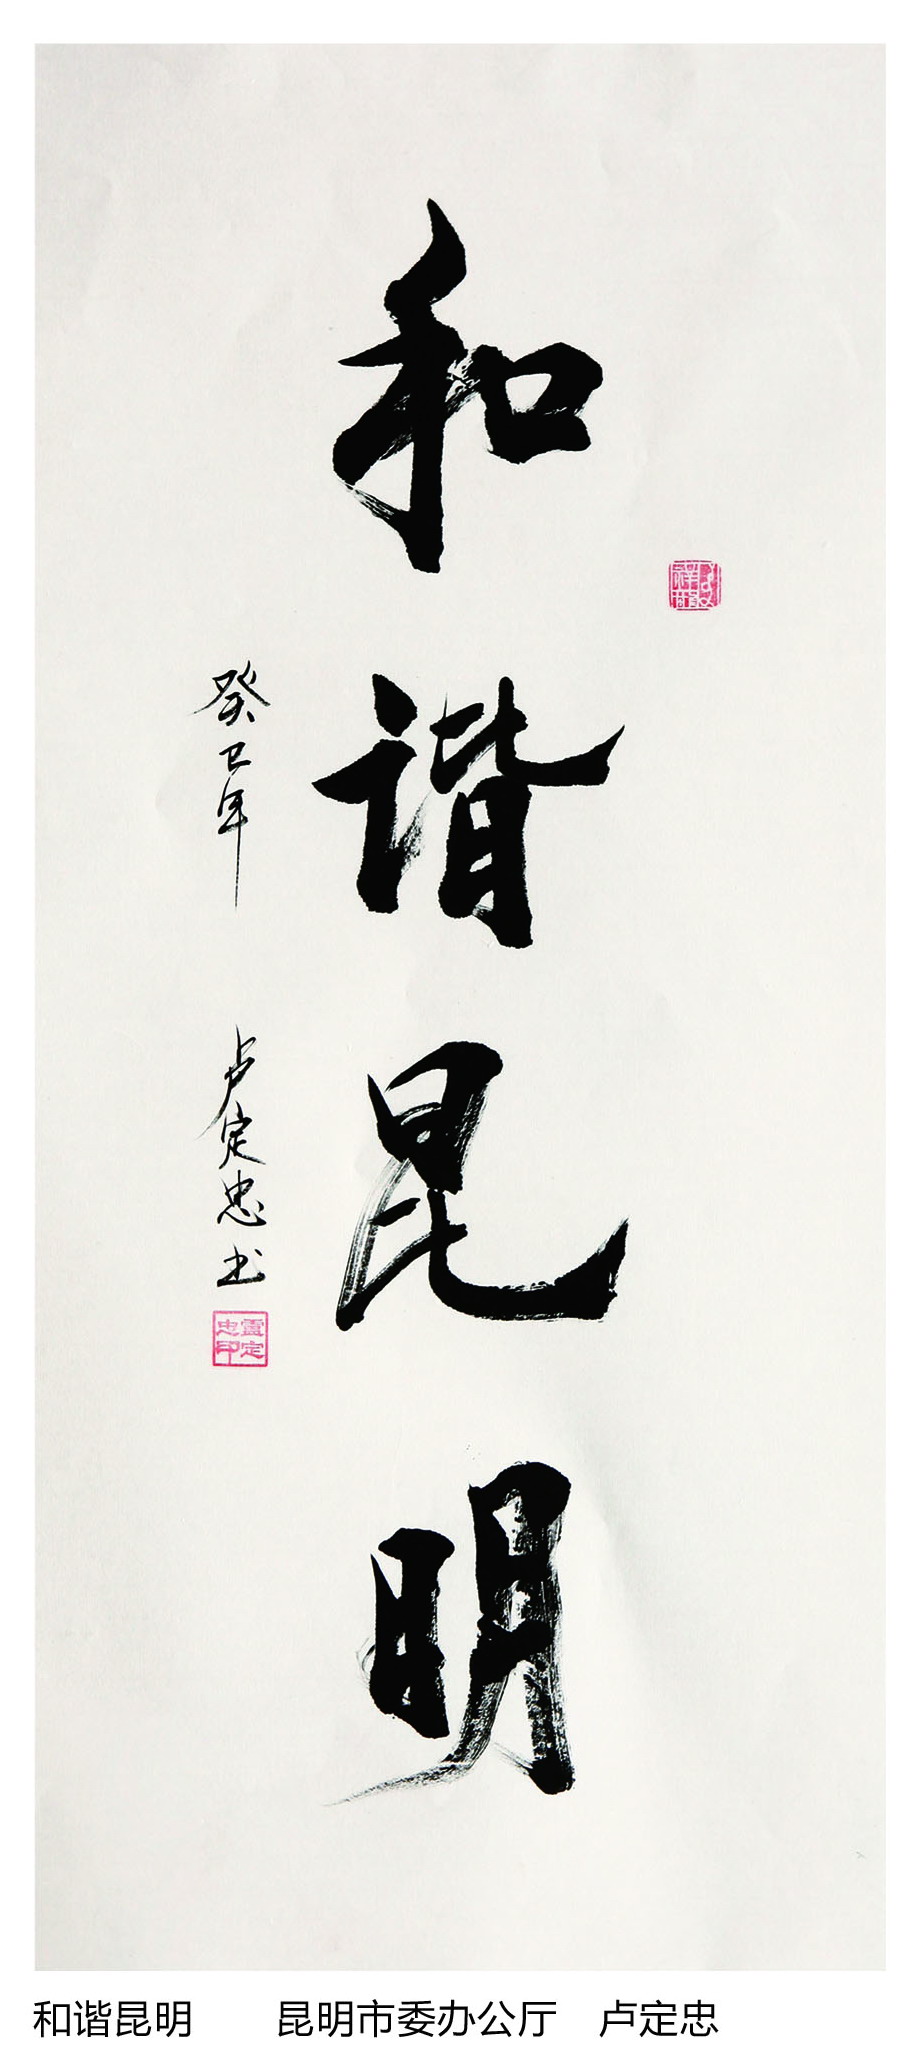 和谐昆明
癸巳年 卢定忠书
盧定忠印
和谐昆明 昆明市委办公厅 卢定忠